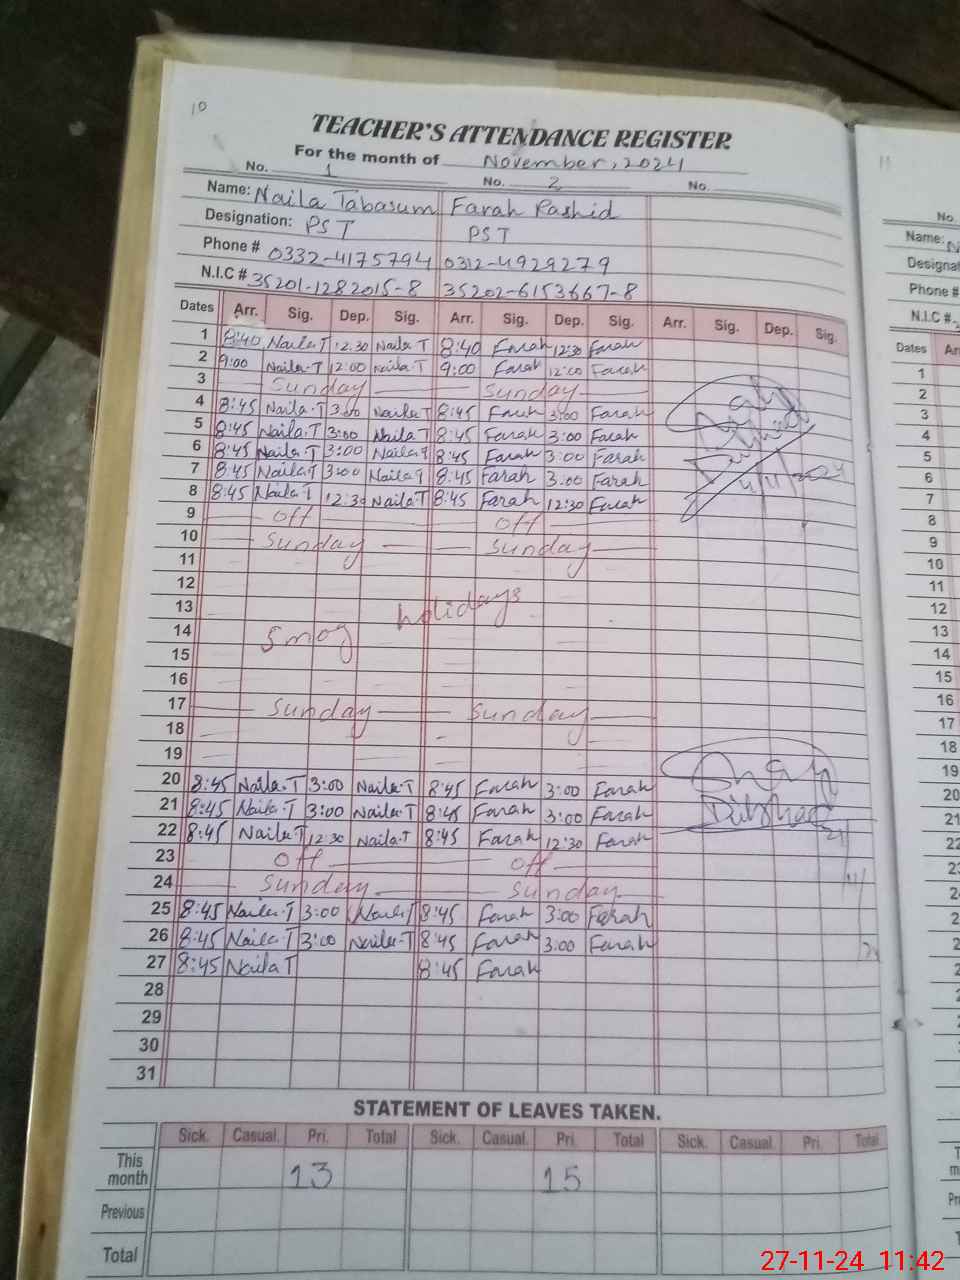 10
TEACHER'S ATTENDANCE REGISTER
For the month of November, 2024
No. 1 No. 2 No.
Name: Naila Tabasum Farah Rashid
Designation: PST PST
Phone # 0332-4175794 0312-4929279
N.I.C # 35201-1282015-8 35202-6153667-8
Dates Arr. Sig. Dep. Sig. Arr. Sig. Dep. Sig. Arr. Sig. Dep. Sig.
1 8:40 Naila.T 12:30 Naila T 8:40 Farah 12:30 Farah
2 9:00 Naila.T 12:00 Naila.T 9:00 Farah 12:00 Farah
3 Sunday Sunday
4 8:45 Naila.T 3:00 Naila T 8:45 Farah 3:00 Farah
5 8:45 Naila.T 3:00 Naila T 8:45 Farah 3:00 Farah
6 8:45 Naila T 3:00 Naila T 8:45 Farah 3:00 Farah
7 8:45 Naila T 3:00 Naila T 8:45 Farah 3:00 Farah
8 8:45 Naila T 12:30 Naila.T 8:45 Farah 12:30 Farah
4/11/2024
9 off off
10 Sunday Sunday
11
12
13 holidays
14 Smog
15
16
17 Sunday Sunday
18
19
20 8:45 Naila.T 3:00 Naila.T 8:45 Farah 3:00 Farah
21 8:45 Naila.T 3:00 Naila.T 8:45 Farah 3:00 Farah
22 8:45 Naila.T 12:30 Naila.T 8:45 Farah 12:30 Farah
23 off off
24 Sunday Sunday
25 8:45 Naila.T 3:00 Naila T 8:45 Farah 3:00 Farah
26 8:45 Naila.T 3:00 Naila.T 8:45 Farah 3:00 Farah
27 8:45 Naila T 8:45 Farah
28
29
30
31
STATEMENT OF LEAVES TAKEN.
Sick. Casual. Pri. Total Sick. Casual. Pri. Total Sick. Casual. Pri. Total
This month 13 15
Previous
Total
11
No.
Name:
Phone #
N.I.C #
Dates
1
2
3
4
5
6
7
8
9
10
11
12
13
14
15
16
17
18
19
20
21
22
27-11-24 11:42